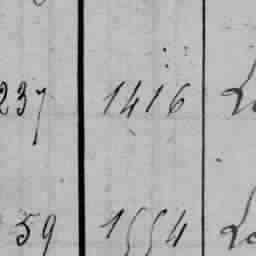 237 1416
59 1554